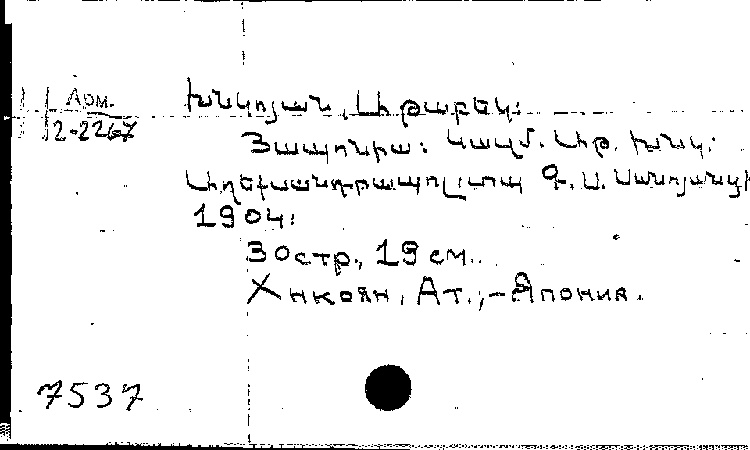 Арм.
2-2267
Խնկոյան, Աթաբեկ:
Յապոնիա: Կազմ. Աթ. Խնկ:
Ալեքսանդրապոլ, տպ Գ. Ս. Սանոյանցի
1904:
30 стр., 19 см.
Хнкоян, Ат., - Япония.
7537